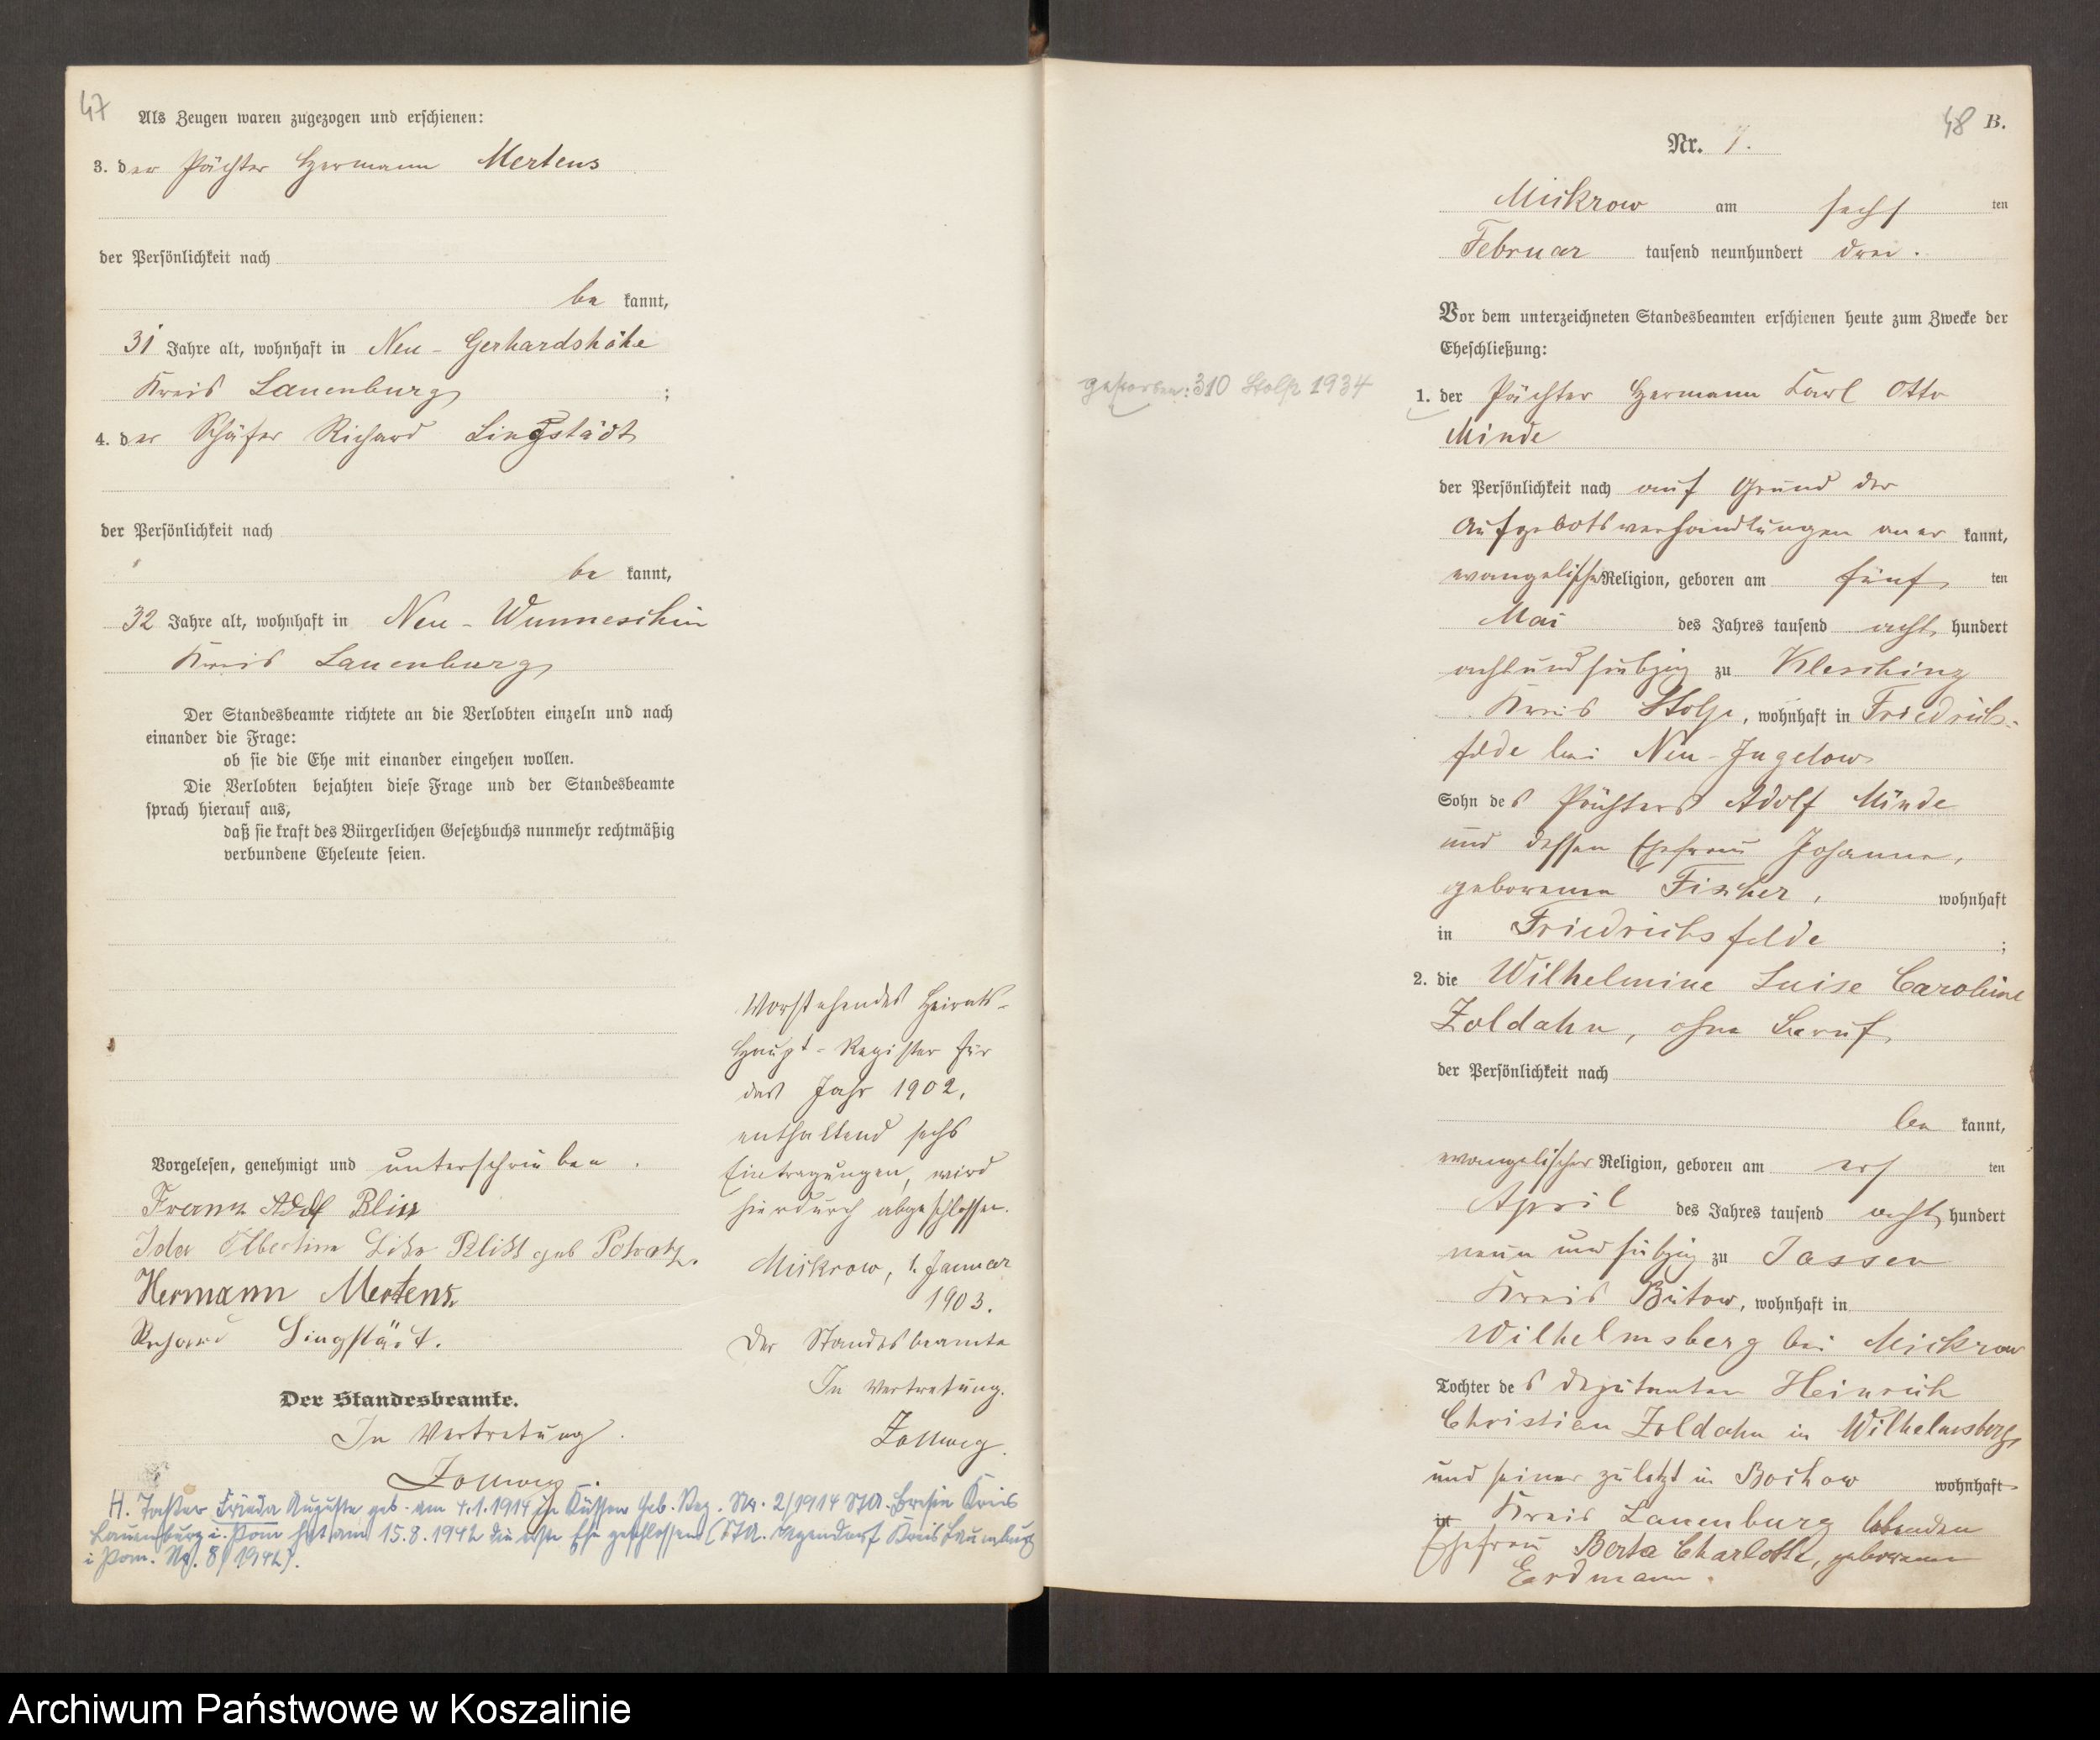 47
Als Zeugen waren zugezogen und erschienen:
3. der Pächter Hermann Mertens
der Persönlichkeit nach
be kannt,
31 Jahre alt, wohnhaft in Neu-Gerhardshöhe
Kreis Lauenburg ;
4. der Schäfer Richard Lingstädt
der Persönlichkeit nach
be kannt,
32 Jahre alt, wohnhaft in Neu-Wunneschin
Kreis Lauenburg
Der Standesbeamte richtete an die Verlobten einzeln und nach
einander die Frage:
ob sie die Ehe mit einander eingehen wollen.
Die Verlobten bejahten diese Frage und der Standesbeamte
sprach hierauf aus,
daß sie kraft des Bürgerlichen Gesetzbuchs nunmehr rechtmäßig
verbundene Eheleute seien.
Vorgelesen, genehmigt und unterschrieben.
Franz Adolf Bliss
Ida Albertine Bliss geb Potratz.
Hermann Mertens
Richard Lingstädt.
Der Standesbeamte.
In Vertretung.
Zollweg.
Vorstehendes Heirats-
Haupt-Register für
das Jahr 1902,
enthaltend sechs
Eintragungen, wird
hierdurch abgeschlossen.
Mickrow, 1. Januar
1903.
Der Standesbeamte
In Vertretung.
Zollweg.
H. Tochter Frieda Auguste geb. am 4.1.1914 in Küssow Geb. Reg. Nr. 2/1914 StA. Kreis
Lauenburg i. Pom hat am 15.8.1942 die erste Ehe geschlossen (StA. Kreis Lauenburg
i Pom. Nr. 8/1942).
48 B.
Nr. 1.
Mickrow am sechs ten
Februar tausend neunhundert drei.
Vor dem unterzeichneten Standesbeamten erschienen heute zum Zwecke der
Eheschließung:
gestorben: 310 Stolp 1934
1. der Pächter Hermann Karl Otto
Minde
der Persönlichkeit nach auf Grund der
Aufgebotsverhandlungen aner kannt,
evangelischer Religion, geboren am fünf ten
Mai des Jahres tausend acht hundert
achtundsiebzig zu Kleschinz
Kreis Stolp, wohnhaft in Friedrichs-
felde bei Neu-Jugelow
Sohn des Pächters Adolf Minde
und dessen Ehefrau Johanne,
geborenen Fischer, wohnhaft
in Friedrichsfelde ;
2. die Wilhelmine Luise Caroline
Zoldahn, ohne Beruf
der Persönlichkeit nach
be kannt,
evangelischer Religion, geboren am ers ten
April des Jahres tausend acht hundert
neun und siebzig zu Jassen
Kreis Bütow, wohnhaft in
Wilhelmsberg bei Mickrow
Tochter des Deputanten Heinrich
Christian Zoldahn in Wilhelmsberg
und seiner zuletzt in Bochow wohnhaft
in Kreis Lauenburg lebenden
Ehefrau Berta Charlotte, geborenen
Erdmann.
Archiwum Państwowe w Koszalinie